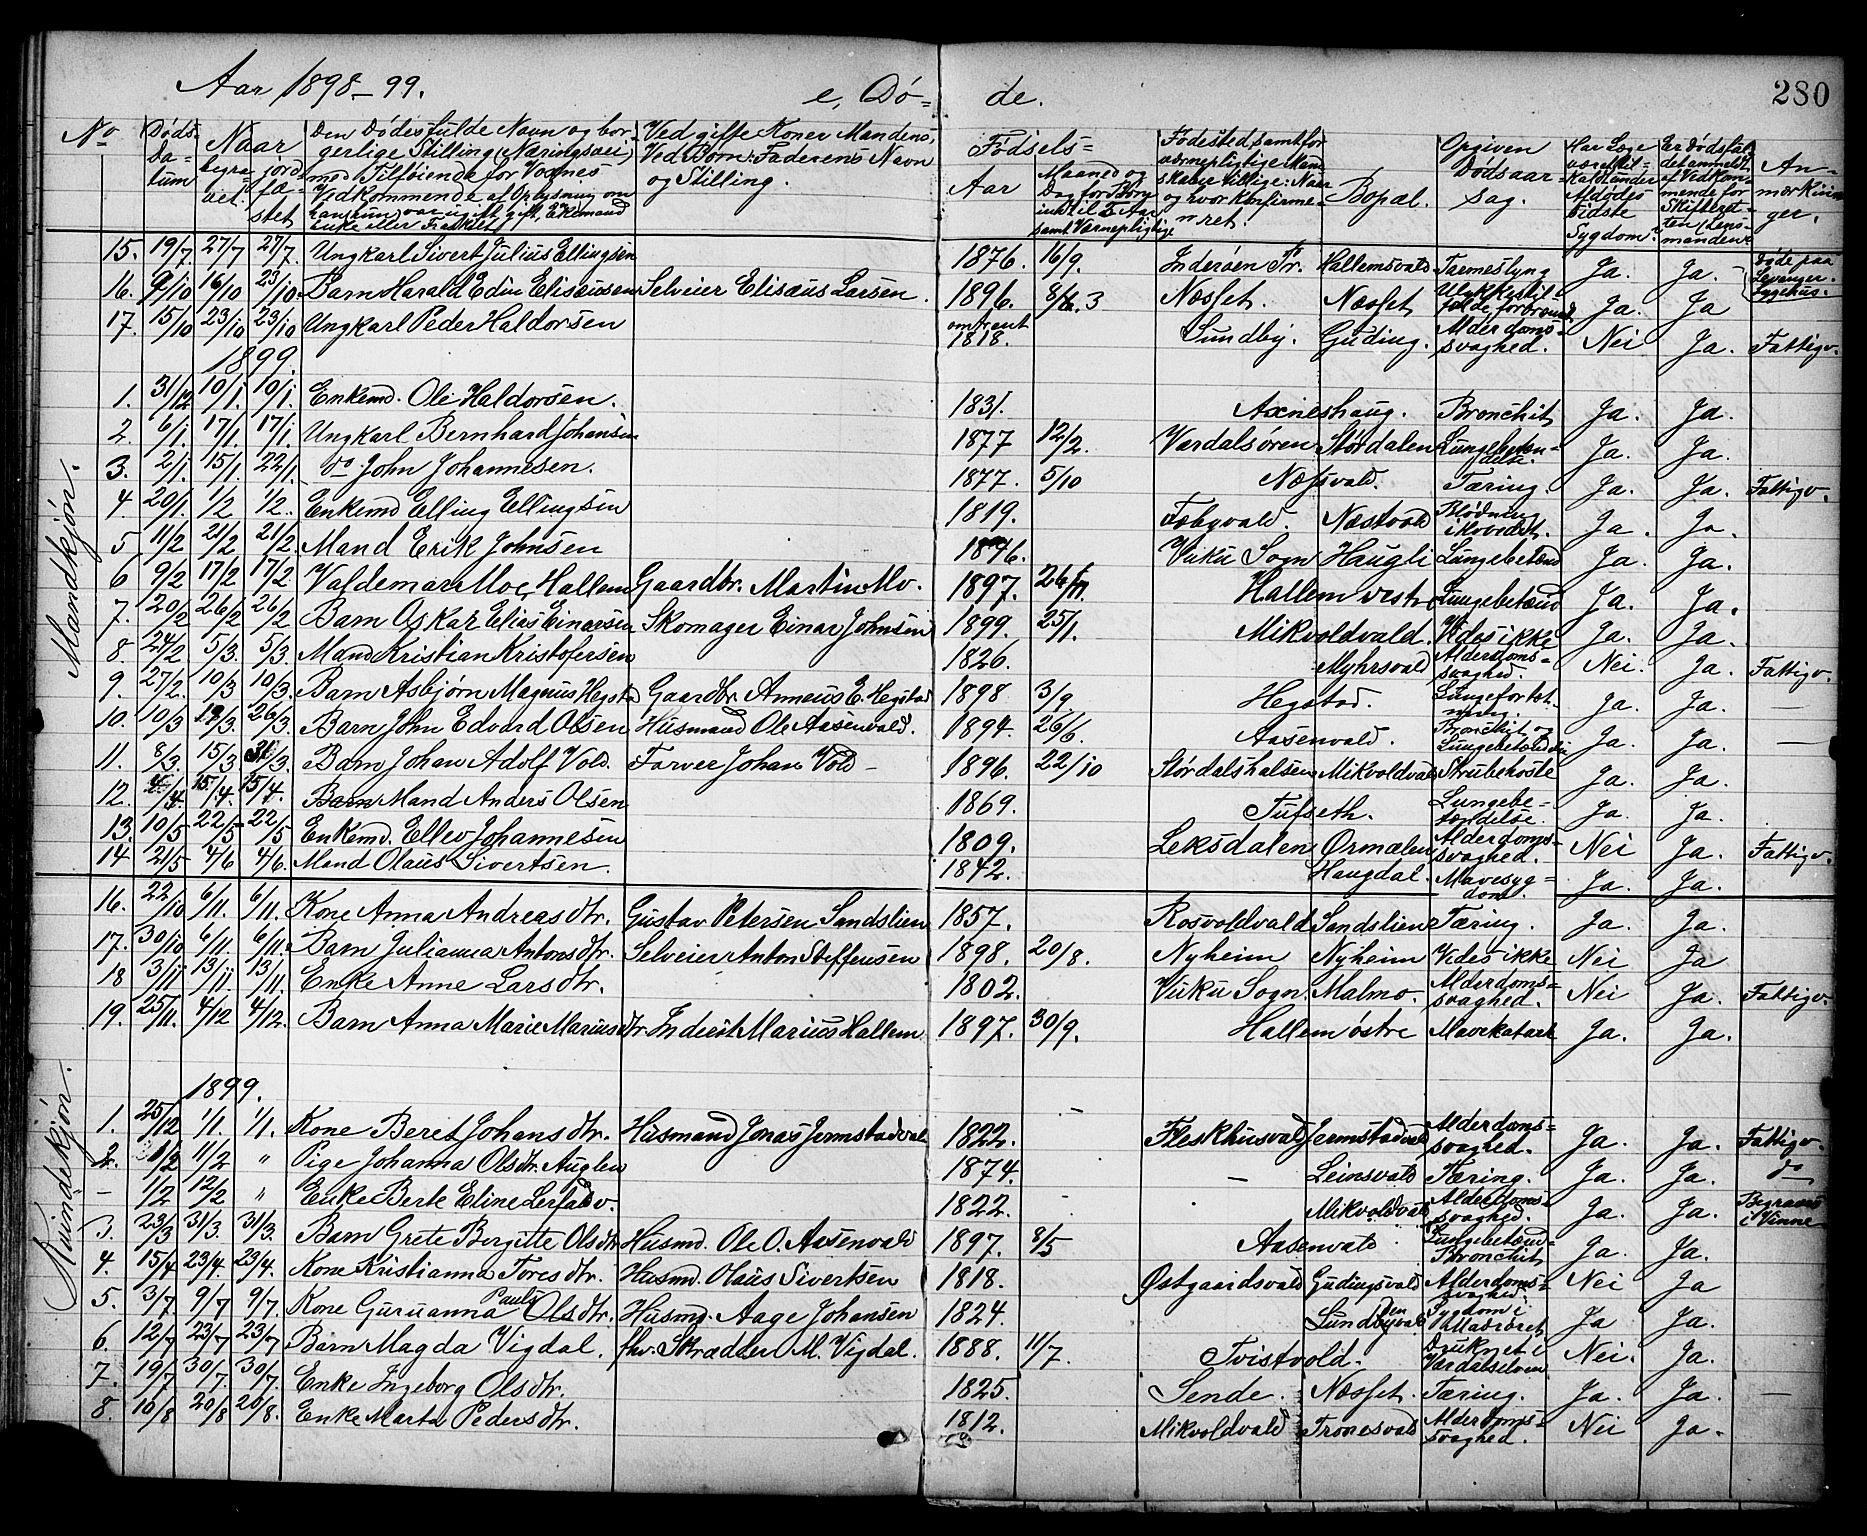 Aar 1898-99.
e, Dö-
de.
280
No
Döds-
da-
tum
Naar
begra-
vet.
jord-
fæ-
stet
Den Dödes fulde Navn og bor-
gerlige Stilling (Næringsvei)
med Tilföiende for Voxnes
Vedkommende af Oplysning om
han (hun) var ugift, gift, Enkemand
Enke eller Fraskilt
Ved gifte Koner Mandens,
Ved Børn: Faderens Navn
og Stilling.
Födsels-
Aar
Maaned og
Dag for Börn
indtil 5 Aar
samt Værnepligtige
Födested, samt for
værnepligtige Mand-
skaber tillige: Naar
og hvor Konfirme-
ret.
Bopæl.
Opgiven
Dödsaar-
sag.
Har Læge
været til-
kaldt under
Afdödes
sidste
Sygdom?
Er Dödsfal-
det anmeldt
af Vedkom-
mende for
Skifteret-
ten (Lens-
manden)?
An-
mærknin-
ger.
Mandkjön.
15. 19/7 27/7 27/7. Ungkarl Sivert Julius Ellingsen 1876. 16/9. Inderöen Pr. Hallemsvald Tarmeslyng Ja. Ja. Döde paa Levanger Sygehus.
16. 9/10 16/10 23/10 Barn Harald Edin Elisæusen Selveier Elisæus Larsen. 1896. 8/3 Næsset. Næsset Ulykkestilfælde, forbrændt Ja. Ja
17. 15/10 23/10 23/10 Ungkarl Peder Haldorsen omtrent 1818. Sundby. Guding. Alderdomssvaghed. Nei Ja. Fattigv.
1899.
1. 31/12 10/1. 10/1. Enkemd. Ole Haldorsen. 1831. Axneshaug. Bronchit Ja. Ja.
2. 6/1 17/1 17/1 Ungkarl Bernhard Johansen 1877 12/2. Værdalsören Stördalen Lungebetændelse. Ja. Ja.
3. 2/1 15/1. 22/1. do John Johannesen. 1877. 5/10 Næssvald. Tæring. Ja. Ja. Fattigv.
4. 20/1. 1/2 1/2. Enkemd Elling Ellingsen 1819. Fæbyvald. Næstvold Blödning Ja. Ja.
5 11/2 21/2 21/2. Mand Erik Johnsen 1846. Vuku Sogn Haugli Lungebetænd Ja. Ja.
6 9/2 17/2 17/2 Valdemar Moe, Hallem Gaardbr. Martin Mo. 1897. Hallem vestre Lungebetænd Ja. Ja.
7. 20/2 26/2 26/2 Barn Oskar Elias Einarsen Skomager Einar Johnsen 1899. 25/1. Mikvoldvald. Vides ikke Ja. Ja.
8. 24/2 5/3. 5/3. Mand Kristian Kristofersen 1826. Myhrsvald Alderdomssvaghed. Nei Ja. Fattigv.
9. 27/2. 10/3 10/3. Barn Asbjørn Magnus Hegstad Gaardbr. Anneus E. Hegstad 1898 3/9. Hegstad. Ja. Ja. —
10. 10/3 19/3. 26/3. Barn John Edvard Olsen Husmand Ole Aasenvald. 1894. 26/6. Aasenvald. Bronchit og Lungebetændelse Ja. Ja. —
11. 8/3 15/3 31/3. Barn Johan Adolf Vold. Farver Johan Vold — 1896. 22/10 Stördalshalsen Mikvoldvald Strubehoste Ja. Ja.
12. 4/4 15/4. 15/4. Mand Anders Olsen 1869. Tufseth. Lungebetændelse. Ja. Ja.
13. 10/5 22/5 22/5 Enkemd. Ellev Johannesen 1809. Leksdalen Ørmælen Alderdomssvaghed. Nei Ja. Fattigv.
14 21/5 4/6 4/6. Mand Olaus Sivertsen. 1842. Haugdal. Mavesygdom. Ja. Ja.
Kvindekjön.
16. 22/10 6/11. 6/11. Kone Anna Andreasdtr. Gustav Petersen Sandslien 1857. Rosvoldvald Sandslien Tæring. Ja. Ja.
17. 30/10 6/11. 6/11. Barn Julianna Antonsdtr. Selveier Anton Steffensen 1898. 20/8. Nyheim Nyheim Vides ikke Nei Ja
18 3/11 13/11. 13/11. Enke Anne Larsdtr. 1802. Vuku Sogn. Malmo. Alderdomssvaghed. Nei Ja. Fattigv.
19. 25/11. 4/12 4/12. Barn Anna Marie Mariusdtr Inderst Marius Hallem 1897. 30/9. Hallem östre Mavekatarh Ja. Ja.
1899.
1. 25/12 1/1. 1/1. Kone Beret Johansdtr. Husmand Jonas Jermstadvald 1822. Fleskhusvald Jermstadvald Alderdomssvaghed. Ja. Ja. Fattigv.
2. 1/2 11/2 " Pige Johanna Olsdtr. Auglen 1874. — Leinsvald Tæring. Ja. Ja. do
— 1/2 12/2 " Enke Berte Eline Lerfald v. 1822. Mikvoldvald Alderdomssvaghed. Ja. Ja. Begravet i Vinne
3. 23/3 31/3. 31/3. Barn Grete Bergitte Olsdtr Husmd. Ole O. Aasenvald 1897. 8/5 Aasenvald Lungebetænd- Bronchit Ja. Ja.
4. 15/4 23/4. 23/4. Kone Kristianna Toresdtr. Husmd. Olaus Sivertsen 1818. Østgaardsvald Gudingsvald Alderdomssvaghed. Nei Ja
5. 3/7. 9/7 9/7. Kone Guruanna Pauls Olsdtr. Husmd. Aage Johansen 1824. Sundbyvald Sygdom i Ja Ja.
6. 12/7 23/7 23/7 Barn Magda Vigdal. fhv. Skrædder M. Vigdal. 1888. 11/7. Tvistvold. Druknet i Værdalselven Nei. Ja.
7. 19/7 30/7 30/7. Enke Ingeborg Olsdtr. 1825. Sende. Næsset. Tæring. Ja. Ja. —
8. 10/8 20/8 20/8. Enke Marta Pedersdtr. 1812. Mikvoldvald Tronesvald Alderdomssvaghed. Nei Ja.